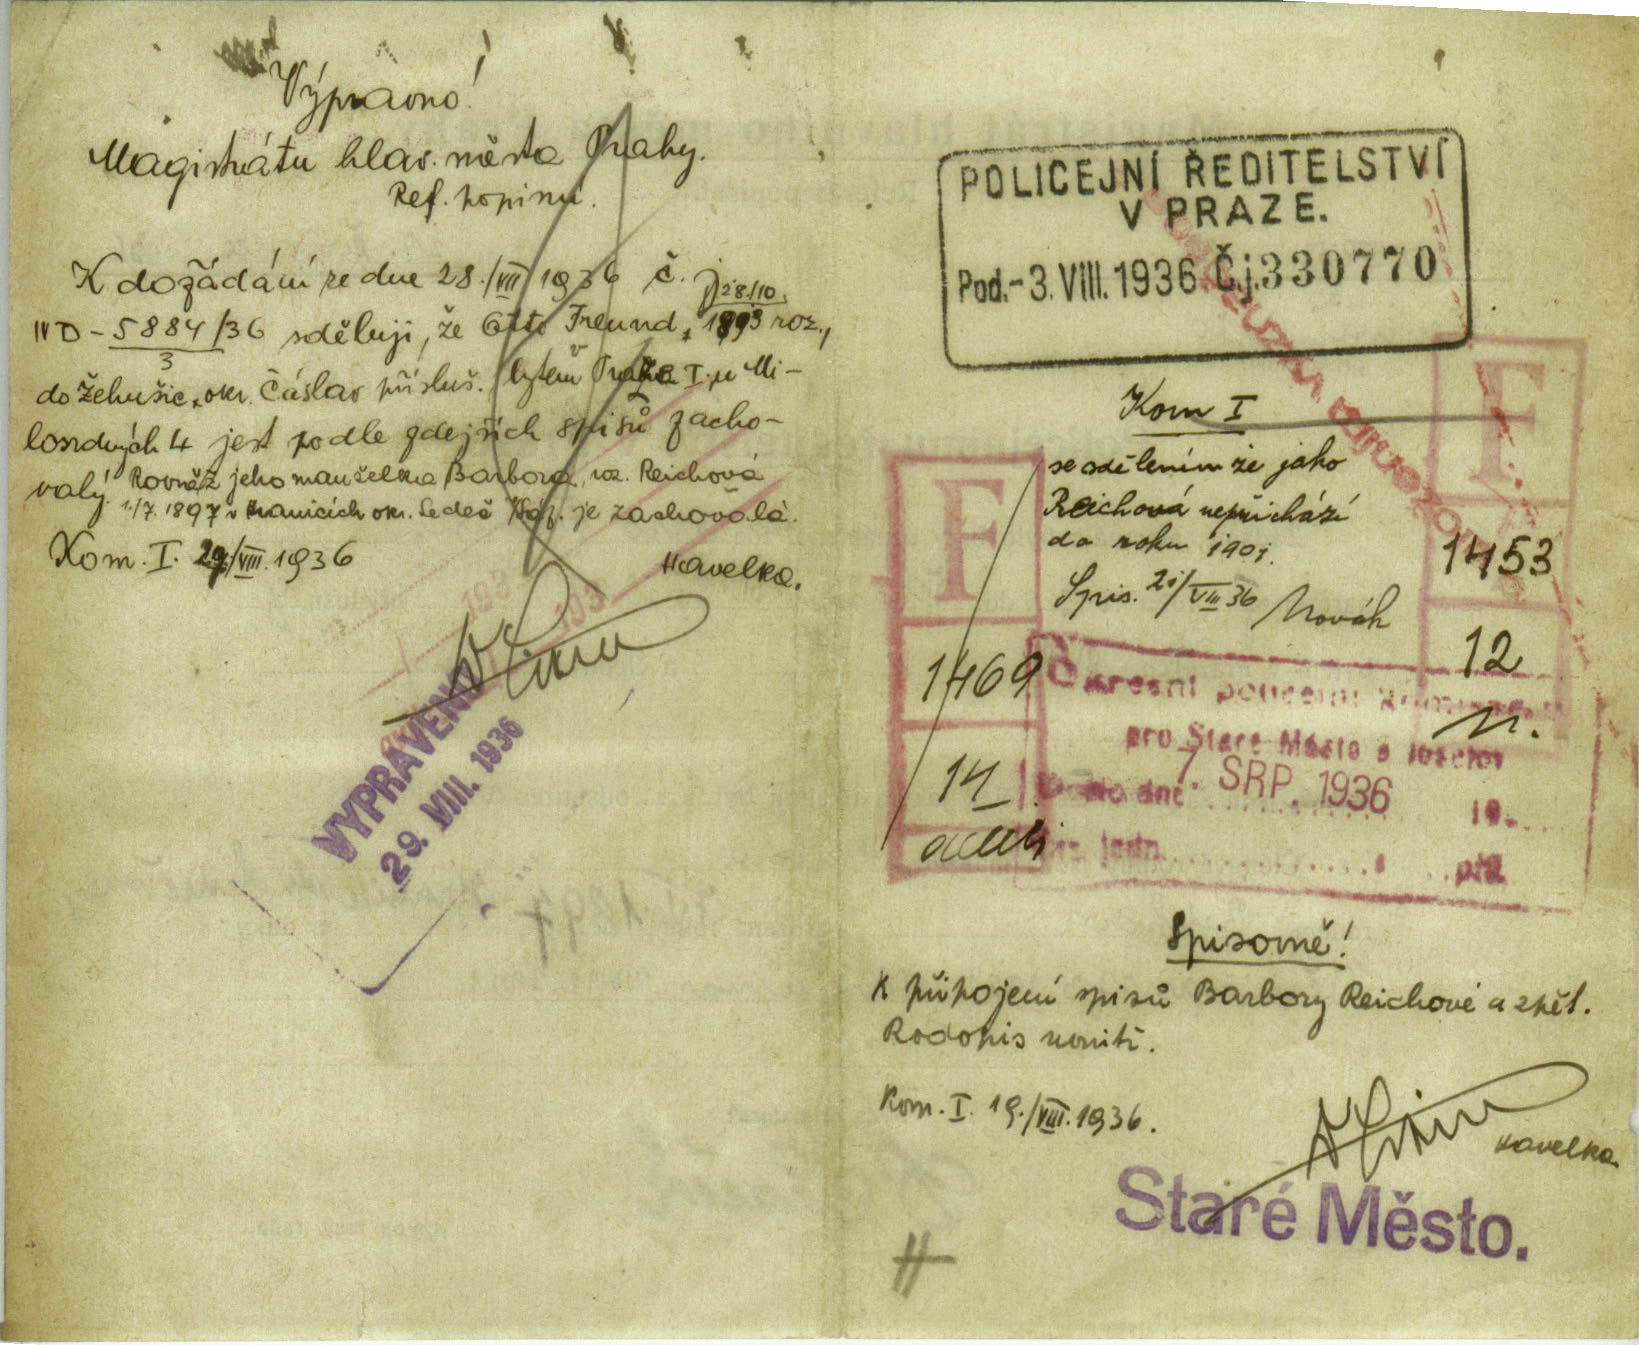 Výpravno!
Magistrátu hlav. města Prahy.
Ref. popisní.
K dožádání ze dne 28./VII 1936 č. j.
28./10.
IV D - 5884/36 sděluji, že Otto Freund, 1893 roz.,
3
do Žehušic, okr. Čáslav přísluš. bytem Praha I., u Mi-
losrdných 4 jest podle zdejších spisů zacho-
valý. Rovněž jeho manželka Barbora, roz. Reichová
1./7. 1897 v okr. Ledeč je zachovalá.
Kom. I. 29/VIII. 1936
Havelka.
VYPRAVENO
29. VIII. 1936
POLICEJNÍ ŘEDITELSTVÍ
V PRAZE.
Pod. -3. VIII. 1936 Č.j. 330770
Kom I
se sdělením že jako
Reichová nepřichází
do roku 1901.
Spis. 21/VIII 36 Novák
F
1469
14
F
1453
12
Okresní policejní
pro Staré Město a Josefov
Došlo dne 7. SRP. 1936 19
čís. jedn. příl.
Spisovně!
K připojení spisů Barbory Reichové a zpět.
Rodopis uvnitř.
Kom. I. 19./VIII. 1936.
Havelka
Staré Město.